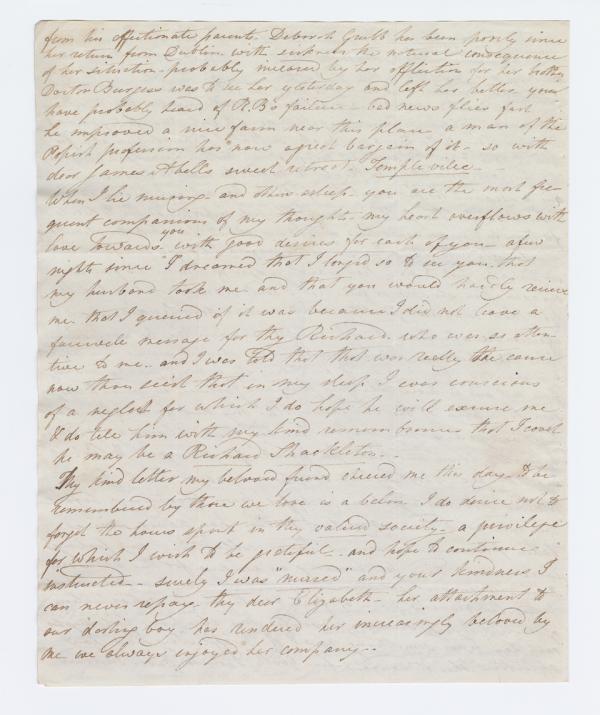 from his affectionate parents Deborah Grubb has been poorly since
her return from Dublin with sickness the natural consequence
of her situation - probably increased by her affliction for her brother
Doctor Burgess was to see her yesterday and left her better you
have probably heard of R.B's failure - bad news flies fast
he improved a nice farm near this place a man of the
Popish profession has now a great bargain of it - so with
dear James Abells sweet retreat. Templevilee -
When I lie musing - and then asleep - you are the most fre-
quent companions of my thoughts my heart overflows with
love towards you with good desires for each of you - a few
nights since I dreamed that I longed so to see you that
my husband took me and that you would hardly receive
me. that I queried if it was because I did not leave a
farewele message for thy Richard who was so atten-
tive to me. and I was told that that was really the cause
now thou seest that in my sleep I was conscious
of a neglect for which I do hope he will excuse me
& do tele him with my kind remembrance that I covet
he may be a Richard Shackleton. -
Thy kind letter my beloved friend cheered me this day. to be
remembered by those we love is a balm I do desire not to
forget the hours spent in thy valued society - a privilege
for which I wish to be grateful - and hope to continue
instructed - surely I was "nursed" and your kindness I
can never repay. thy dear Elizabeth - her attachment to
our darling boy has rendered her increasingly beloved by
me we always enjoyed her company. -